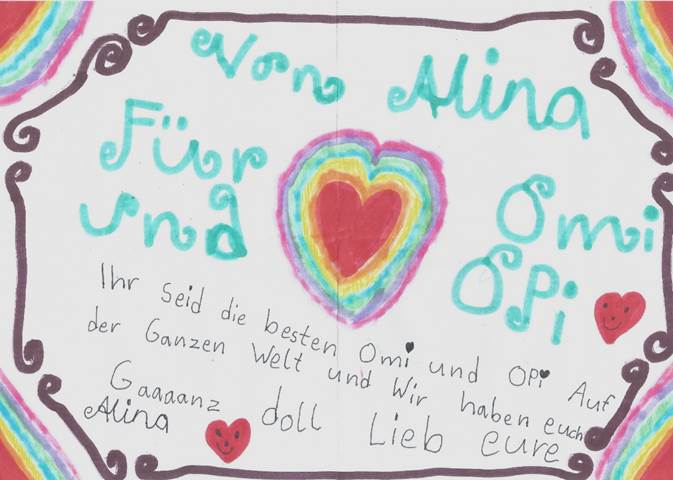 Von Alina
Für Omi
und Opi
Ihr Seid die besten Omi und Opi Auf
der Ganzen Welt und Wir haben euch
Gaaaanz doll Lieb eure
Alina